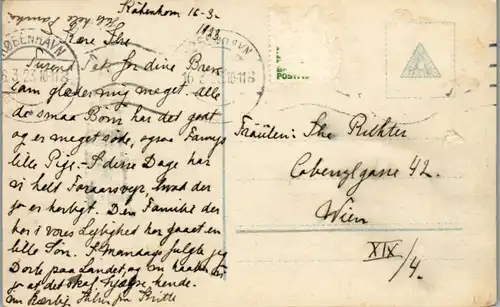 København 16-3-
1923
Kære Ilse
Tusend Tak for dine Breve
som glæder mig meget. Alle
de smaa Børn har det godt
og er meget søde, ogsaa Fannys
lille Pige. I disse Dage har
vi helt Foraarsvejr, hvad der
jo er herligt. Den Familie der
bor i vores Lejlighed har gaaet en
lille Søn. I Mandags fulgte jeg
Dorte paa Landet, og nu haaber
jo at det skal hjælpe hende.
Hilsen fra Gritte
KØBENHAVN
16.3.23.10-11
POSTFR
Fräulein: Ilse Richter
Cobenzlgasse 42.
Wien
XIX/4.